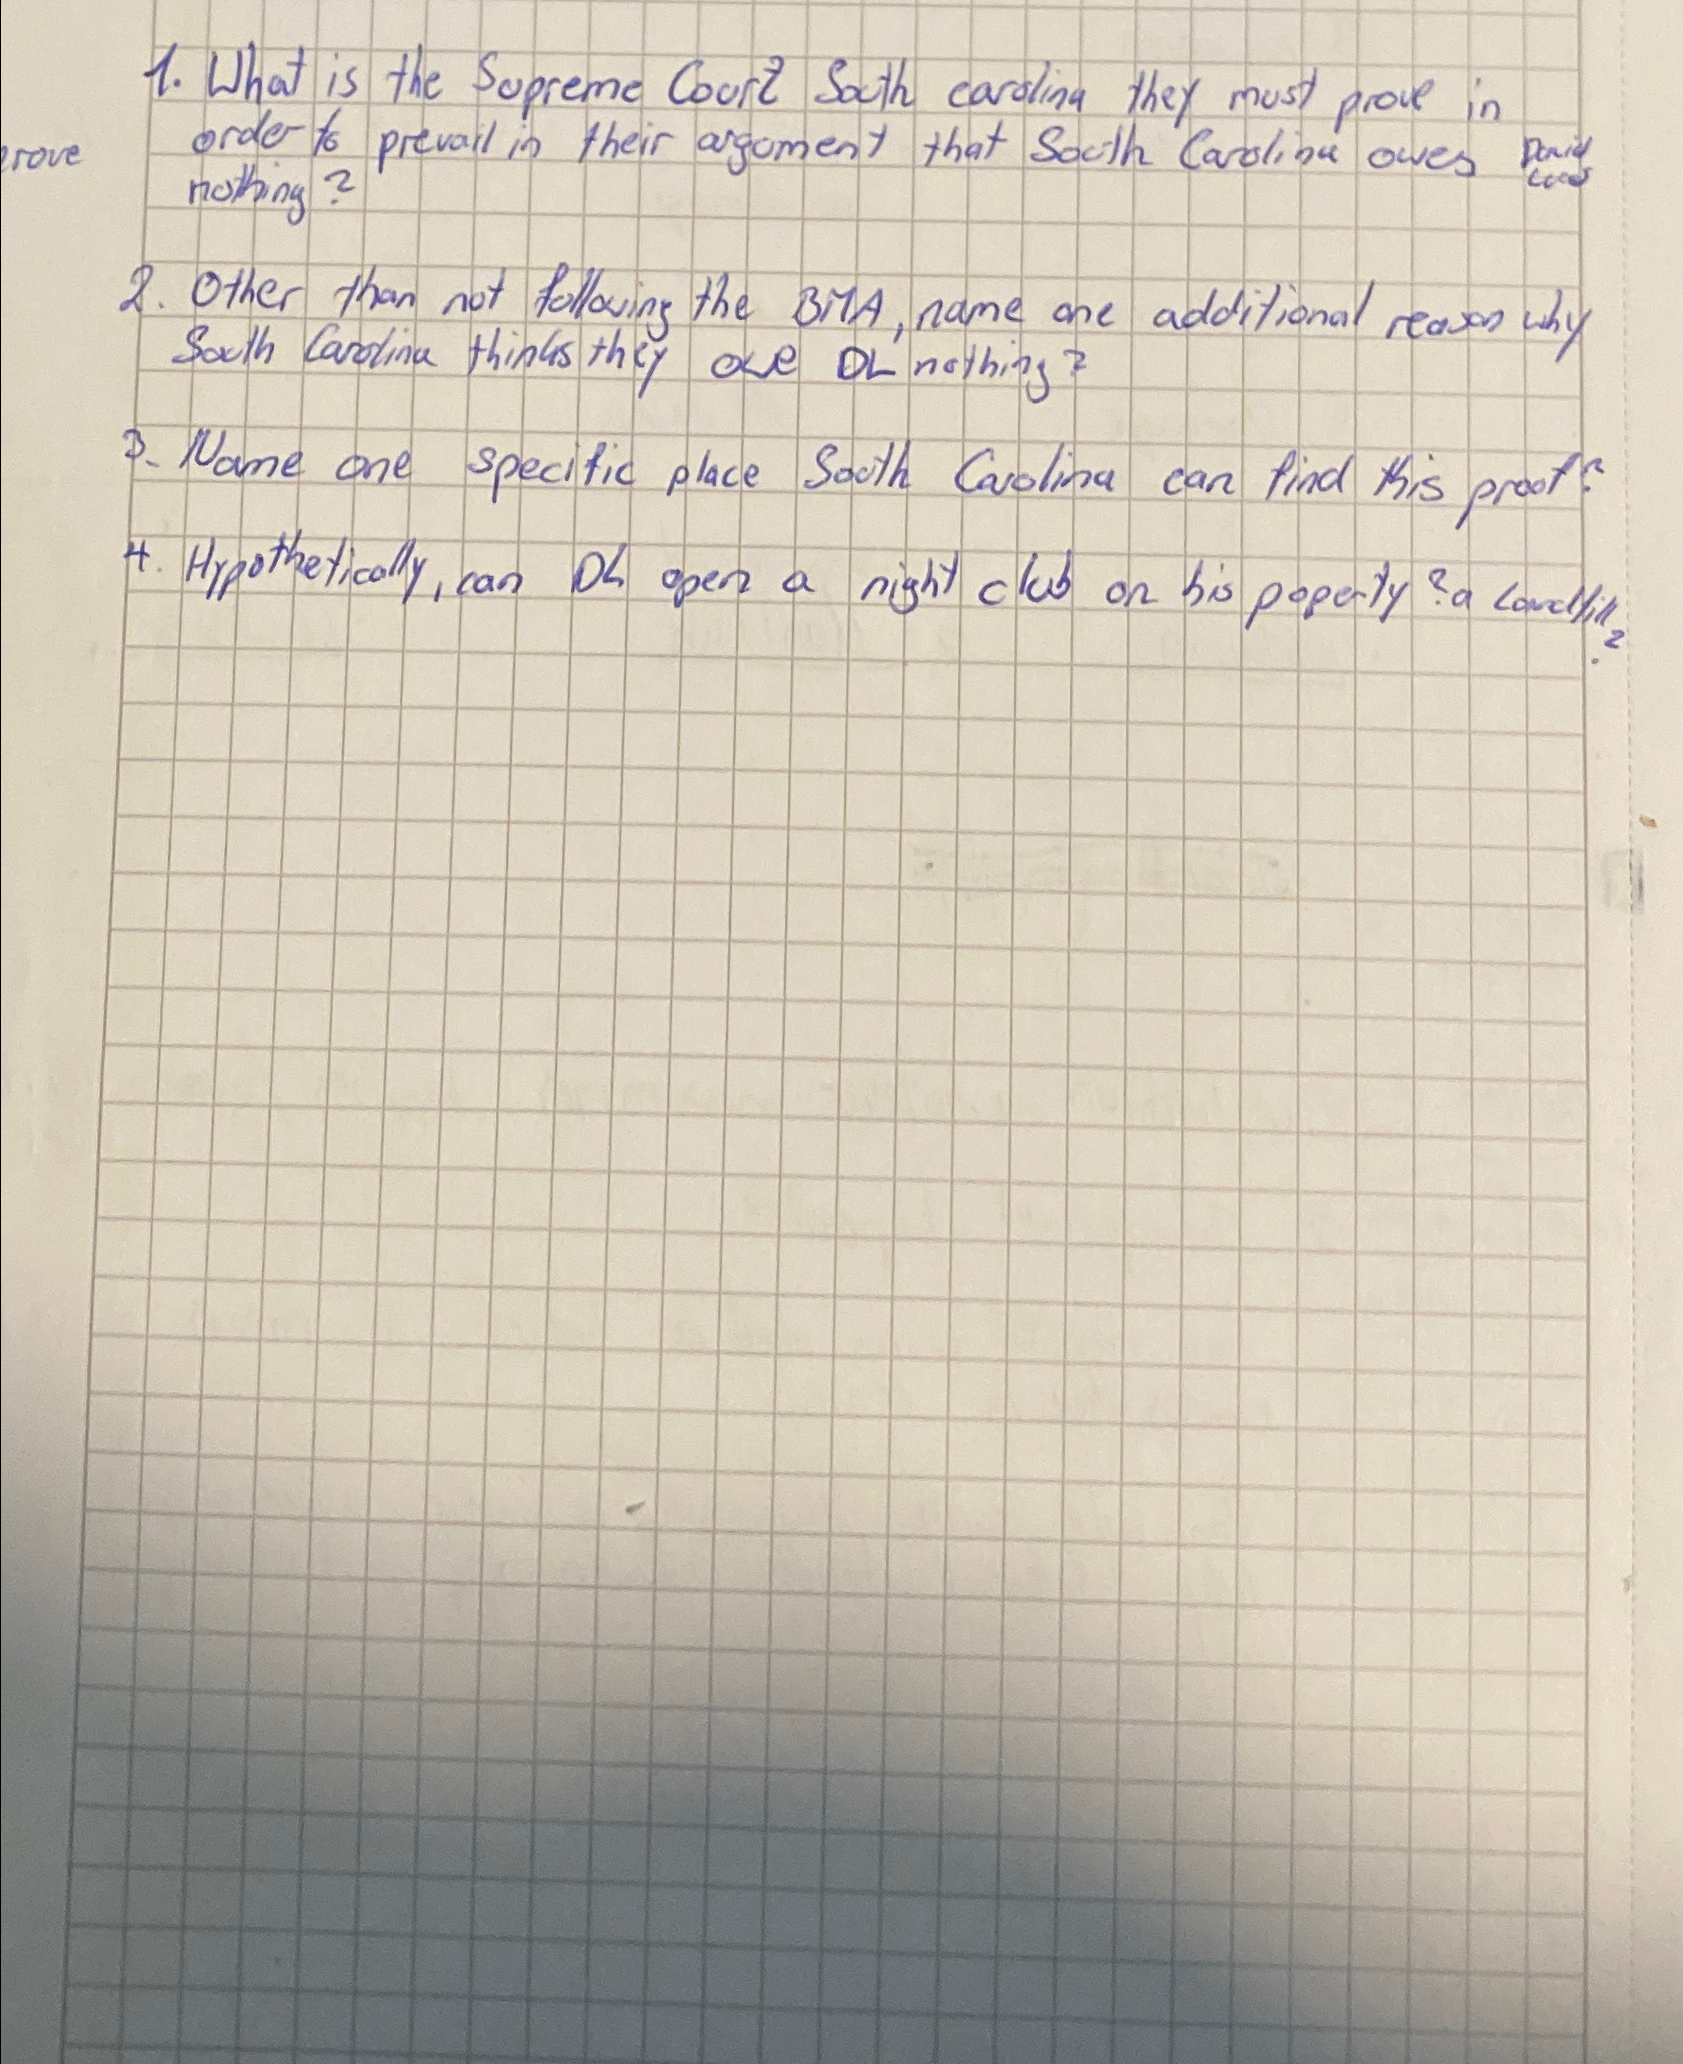 1. What is the Supreme Court South carolina they must prove in
order to prevail in their argument that South Carolina owes David Lucas
nothing?
prove
2. Other than not following the BMA, name one additional reason why
South Carolina thinks they owe DL nothing?
3. Name one specific place South Carolina can find this proof?
4. Hypothetically, can DL open a night club on his poperty? a Landfill?